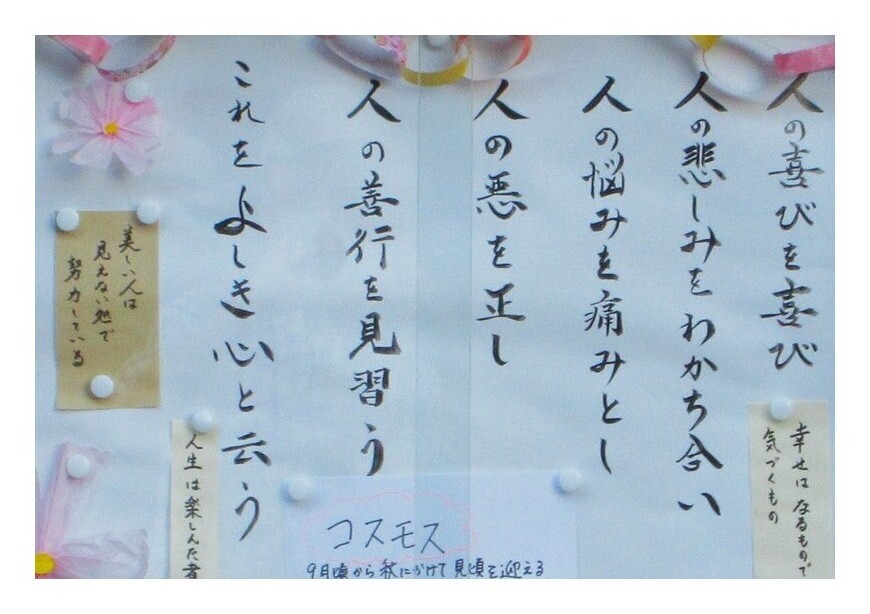 人の喜びを喜び
人の悲しみをわかち合い
人の悩みを痛みとし
人の悪を正し
人の善行を見習う
これをよしき心と云う
幸せはなるもので
気づくもの
コスモス
9月頃から秋にかけて見頃を迎える
美しい人は
見えない処で
努力している
人生は楽しんだ者